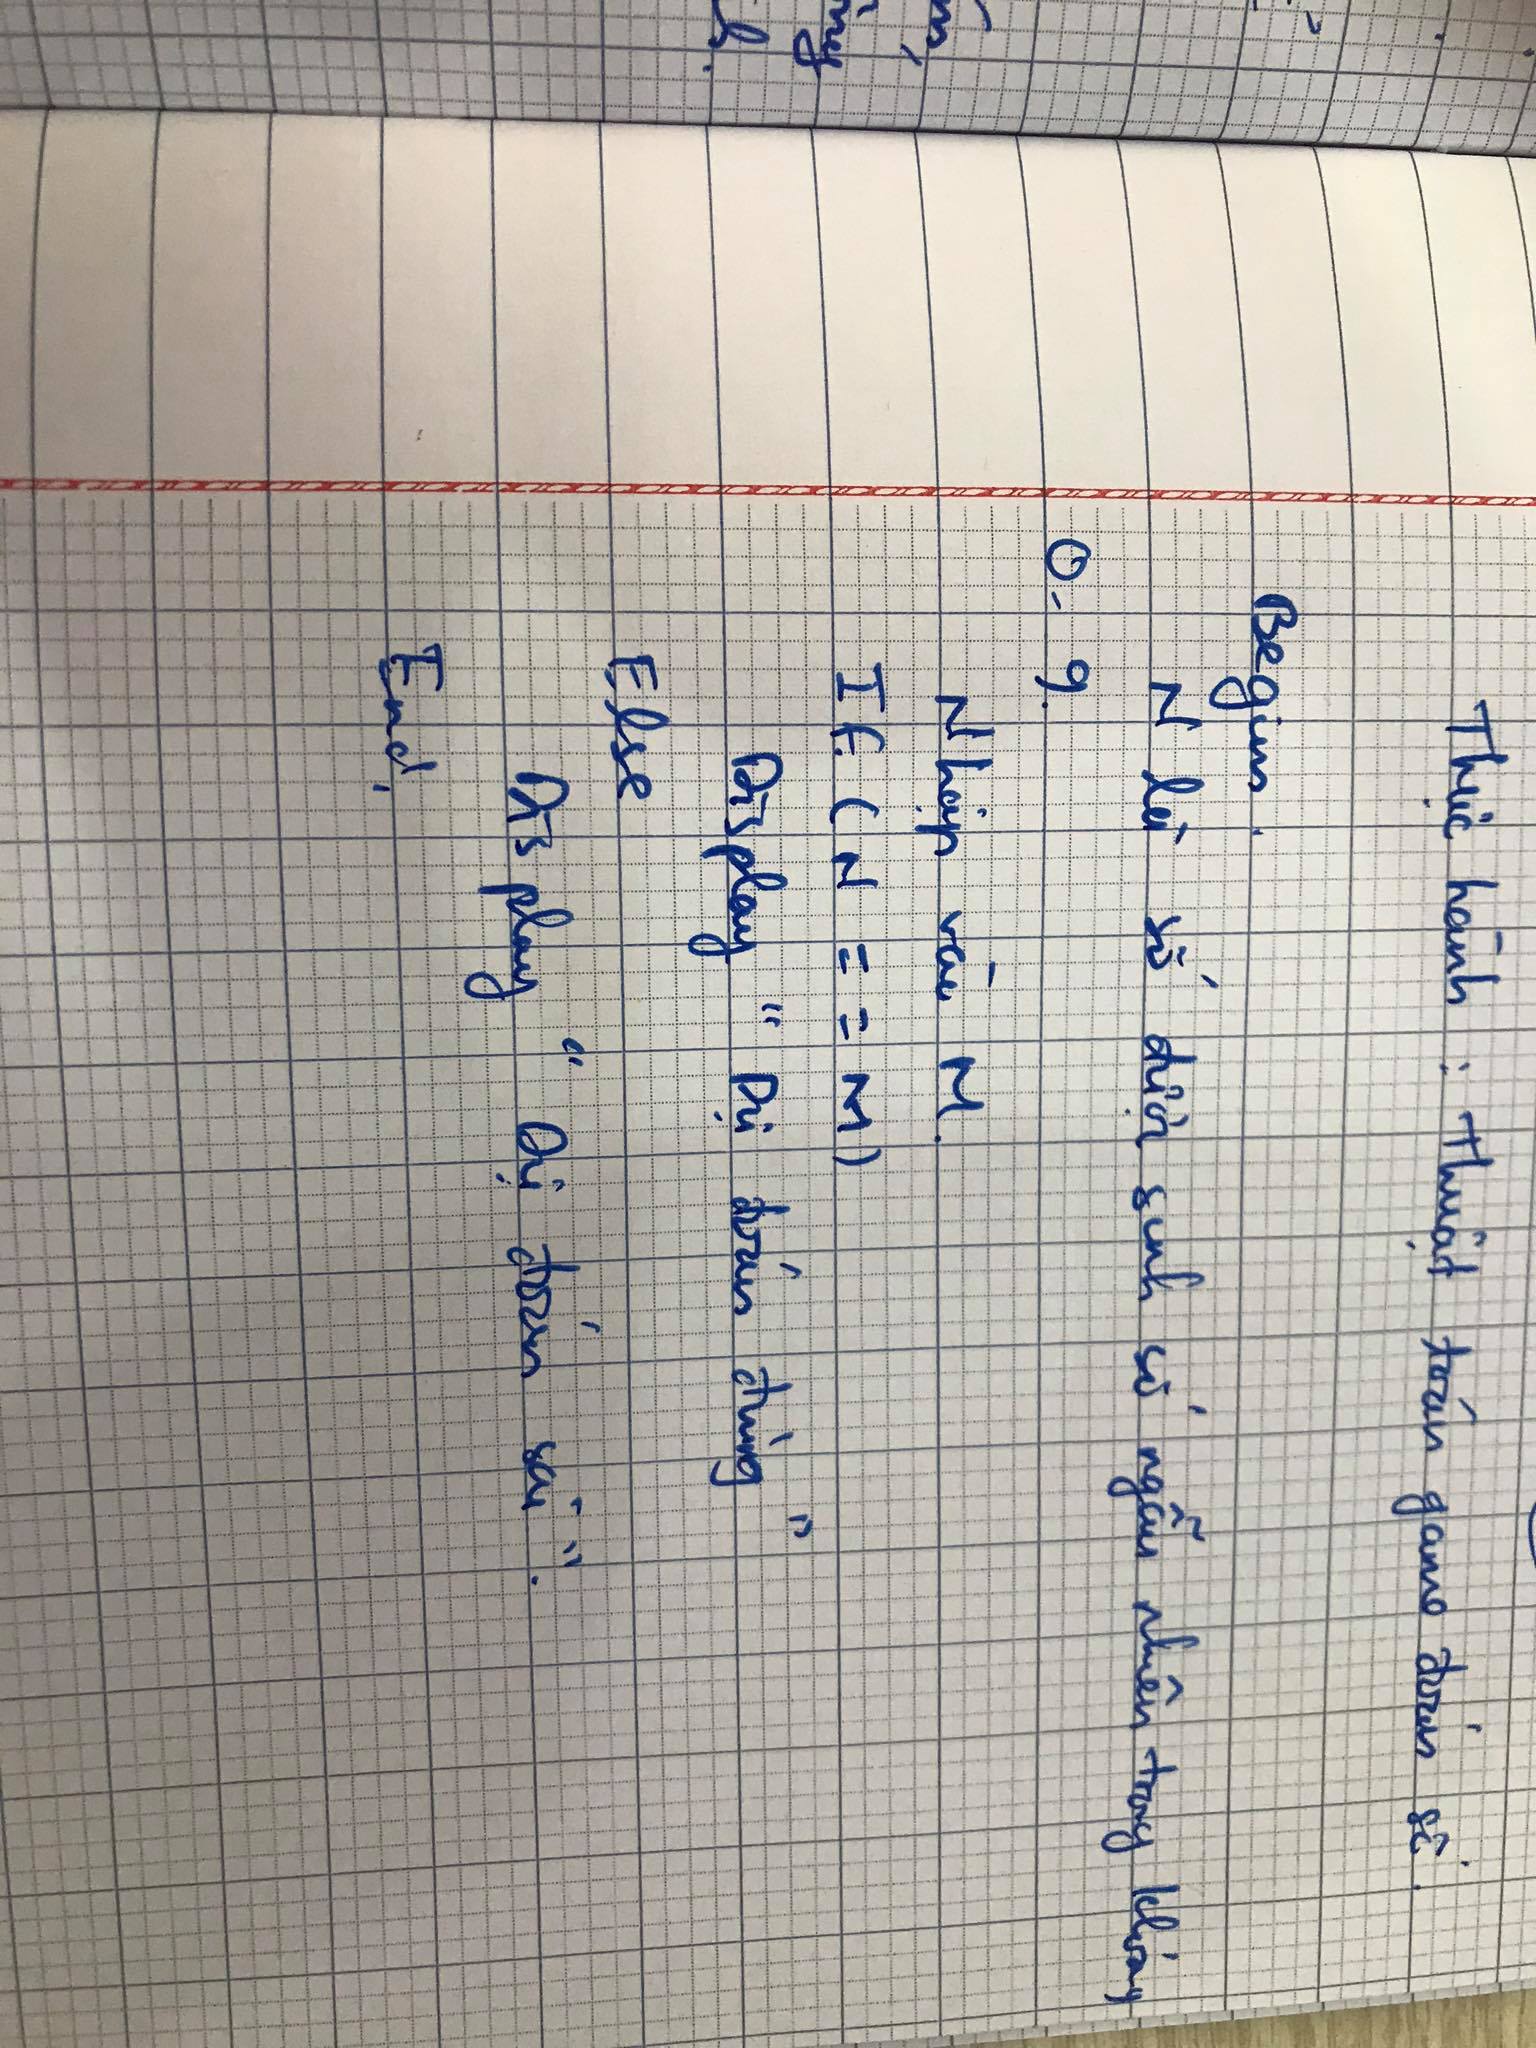 Thực hành : Thuật toán game đoán số.
Begin.
N là số được sinh số ngẫu nhiên trong khoảng
0 - 9.
Nhập vào M.
If. (N == M)
Display " Dự đoán đúng "
Else
Display " Dự đoán sai ".
End.